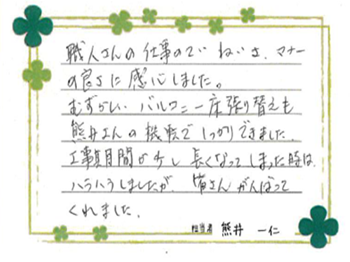 職人さんの仕事のていねいさ、マナー
の良さに感心しました。
むずかしい バルコニー床張り替えも
熊井さんの機転でしっかりできました。
工事期間が少し長くなってしまった時は
ハラハラしましたが、皆さんがんばって
くれました。
担当者 熊井 一仁